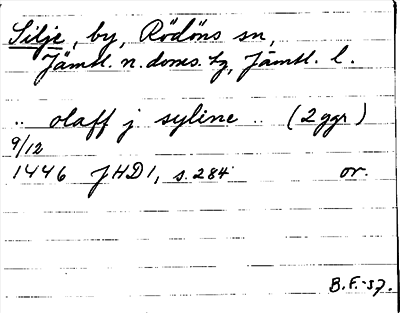 Silje, by, Rödöns sn,
Jämtl. n. doms. tg, Jämtl. l.
.. olaff j syline .. (2 ggr)
9/12
1446 JHD1, s. 284 or.
B.F.-57.